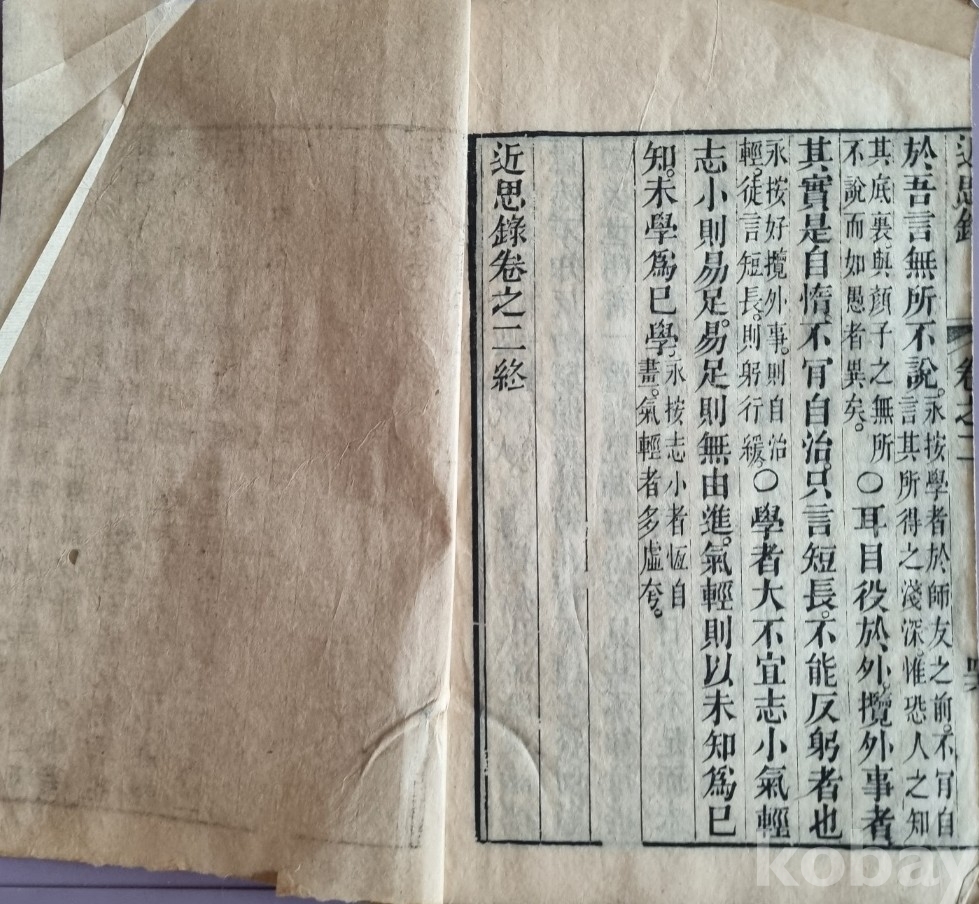 近思錄 卷之二
於吾言無所不說。永按學者於師友之前。不肎自
言其所得之淺深。惟恐人之知
其底裏。與顏子之無所
不說而如愚者異矣。○耳目役於外。攬外事者
其實是自惰。不肎自治。只言短長。不能反躬者也
永按好攬外事。則自治
輕。徒言短長。則躬行緩。○學者大不宜志小氣輕
志小則易足。易足則無由進。氣輕則以未知爲已
知。未學爲已學。永按志小者恆自
畫。氣輕者多虛夸。
近思錄卷之二終
kobay